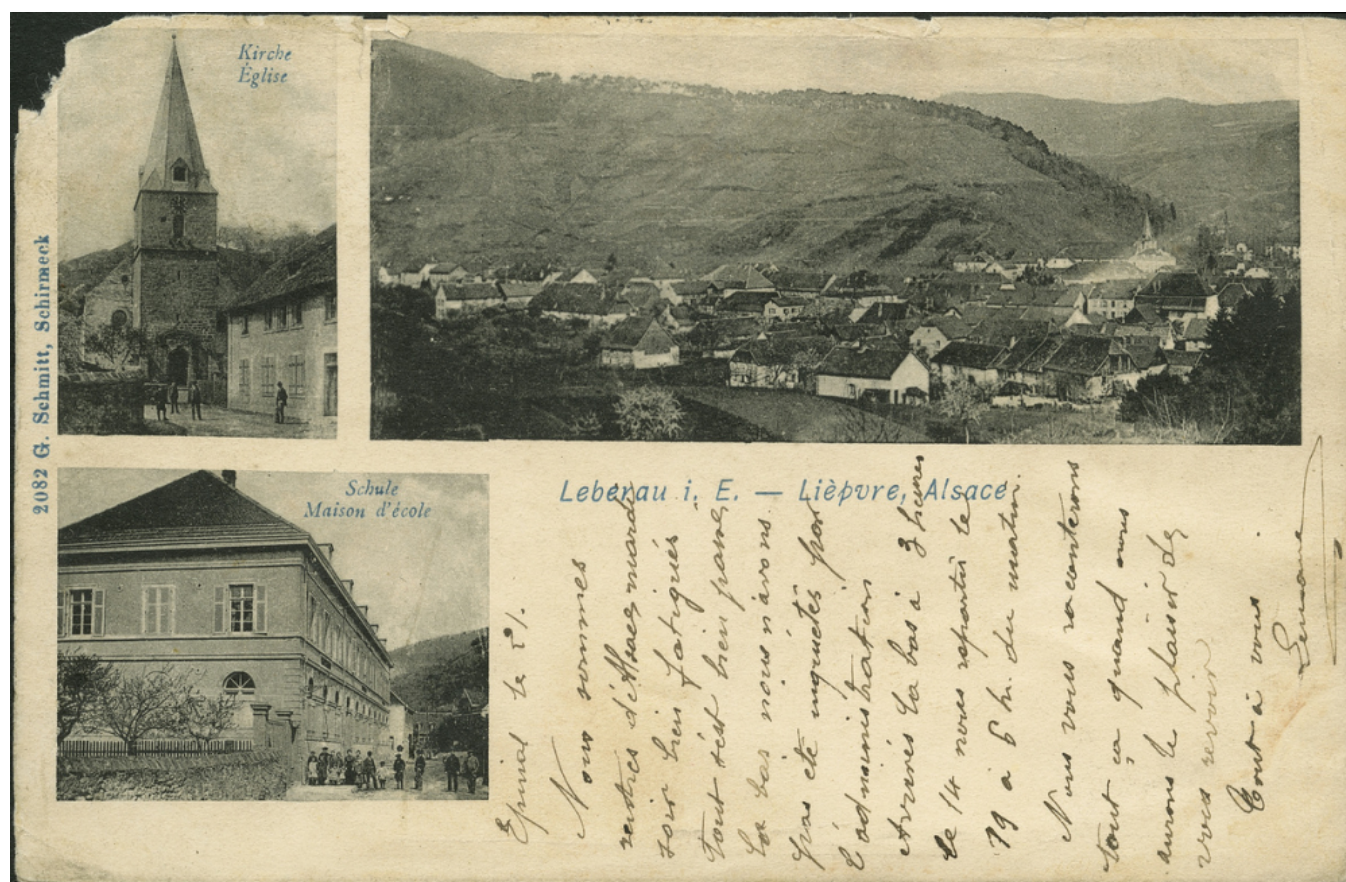 Kirche
Église
2082 G. Schmitt, Schirmeck
Schule
Maison d'école
Leberau i. E. — Lièpvre, Alsace
Epinal le 21.
Nous sommes
rentrés d'Alsace mardi
soir bien fatigués
tout s'est bien passé,
La bas nous n'avons
pas été inquiétés par
l'administration
Arrivés la bas à 3 heures
le 14 nous repartis le
19 à 6 h. du matin.
Nous vous raconterons
tout ça quand nous
aurons le plaisir de
vous revoir
Tout à vous.